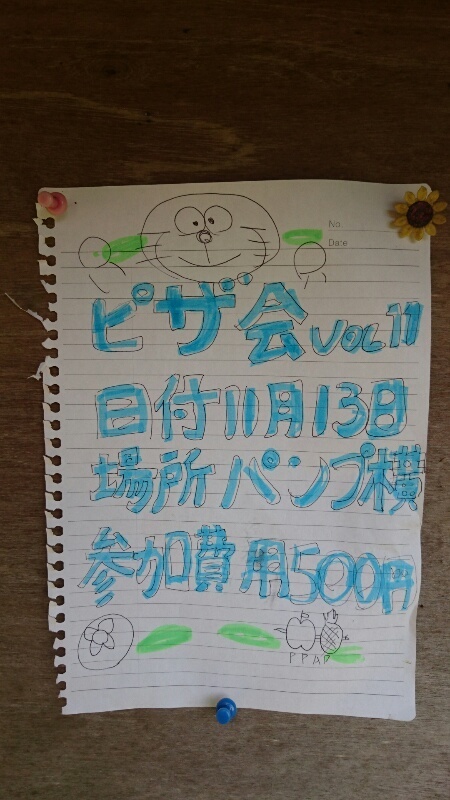 No.
Date
ピザ会 VOL 11
日付11月13日
場所 パンプ横
参加費用500円
PPAP